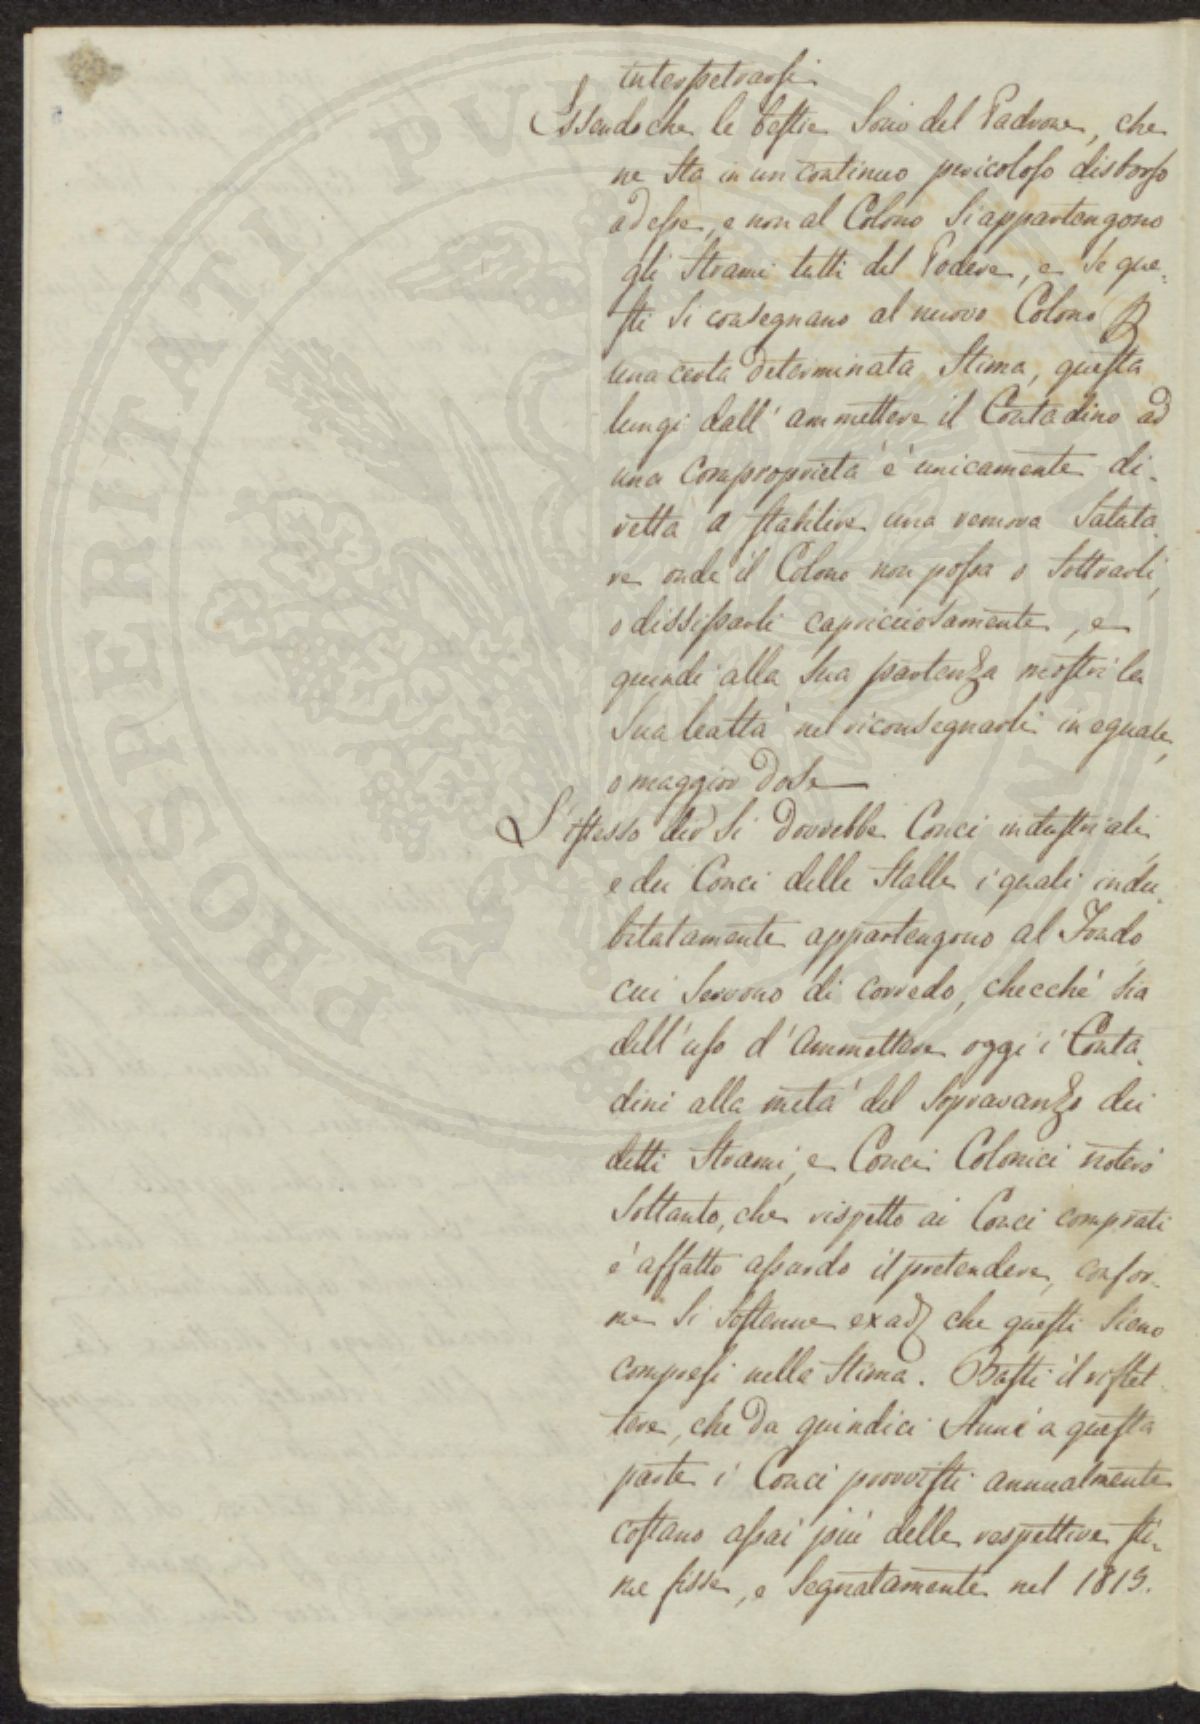 interpetrarsi
Essendoche le bestie sono del Padrone, che
ne sta in un continuo pericoloso disborso
ad esse, e non al Colono si appartengono
gli Strami tutti del Podere, e se que-
sti si consegnano al nuovo Colono p
una certa determinata Stima, questa
lungi dall' ammettere il Contadino ad
una comproprietà è unicamente di-
retta a stabilire una remora saluta
re onde il Colono non possa o sottrarli,
o dissiparli capricciosamente, e
quindi alla sua partenza mostri la
sua lealtà nel riconsegnarli in eguale,
o maggior dose
L'istesso dir si dovrebbe Conci industriali,
e dei Conci delle Stalle i quali indu-
bitatamente appartengono al Fondo
cui servono di corredo, checchè sia
dell'uso d'ammettere oggi i Conta-
dini alla metà del sopravanzo dei
detti Strami, e Conci Colonici noterò
soltanto, che rispetto ai Conci comprati
è affatto assurdo il pretendere, confor-
me si sostenne ex ad che questi sieno
compresi nella Stima. Basti il riflet-
tere, che da quindici Anni a questa
parte i Conci provvisti annualmente
costano assai più delle respettive sti-
me fisse, e segnatamente nel 1815.
PROSPERITATI PUBLICAE AUGENDAE